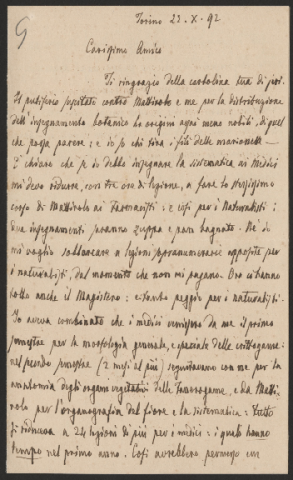 9
Torino 22. X. 92
Carissimo Amico
Ti ringrazio della cartolina tua di jeri.
Il putiferio suscitato contro Mattirolo e me per la distribuzione
dell'insegnamento botanico ha origini assai meno nobili, di quel
che paja parere: e io so chi tira i fili delle marionette —
È chiaro che se io debbo insegnare la sistematica ai Medici
mi devo ridurre, con tre ore di lezione, a fare lo stessissimo
corso di Mattirolo ai Farmacisti: e così per i Naturalisti:
due insegnamenti saranno zuppa e pan bagnato. Nè io
mi voglio sobbarcare a lezioni soprannumerarie apposite per
i naturalisti, dal momento che non mi pagano. Ora ci hanno
tolto anche il Magistero: e tanto peggio per i naturalisti.
Io aveva combinato che i medici venissero da me il primo
semestre per la morfologia generale, e speciale delle crittogame:
nel secondo semestre (2 mesi al più) seguitavano con me per la
anatomia degli organi vegetativi delle Fanerogame, e da Matti-
rolo per l'organografia del fiore e la sistematica: Tutto
si riduceva a 24 lezioni di più per i medici: i quali hanno
tempo nel primo anno. Così avrebbero percorso un